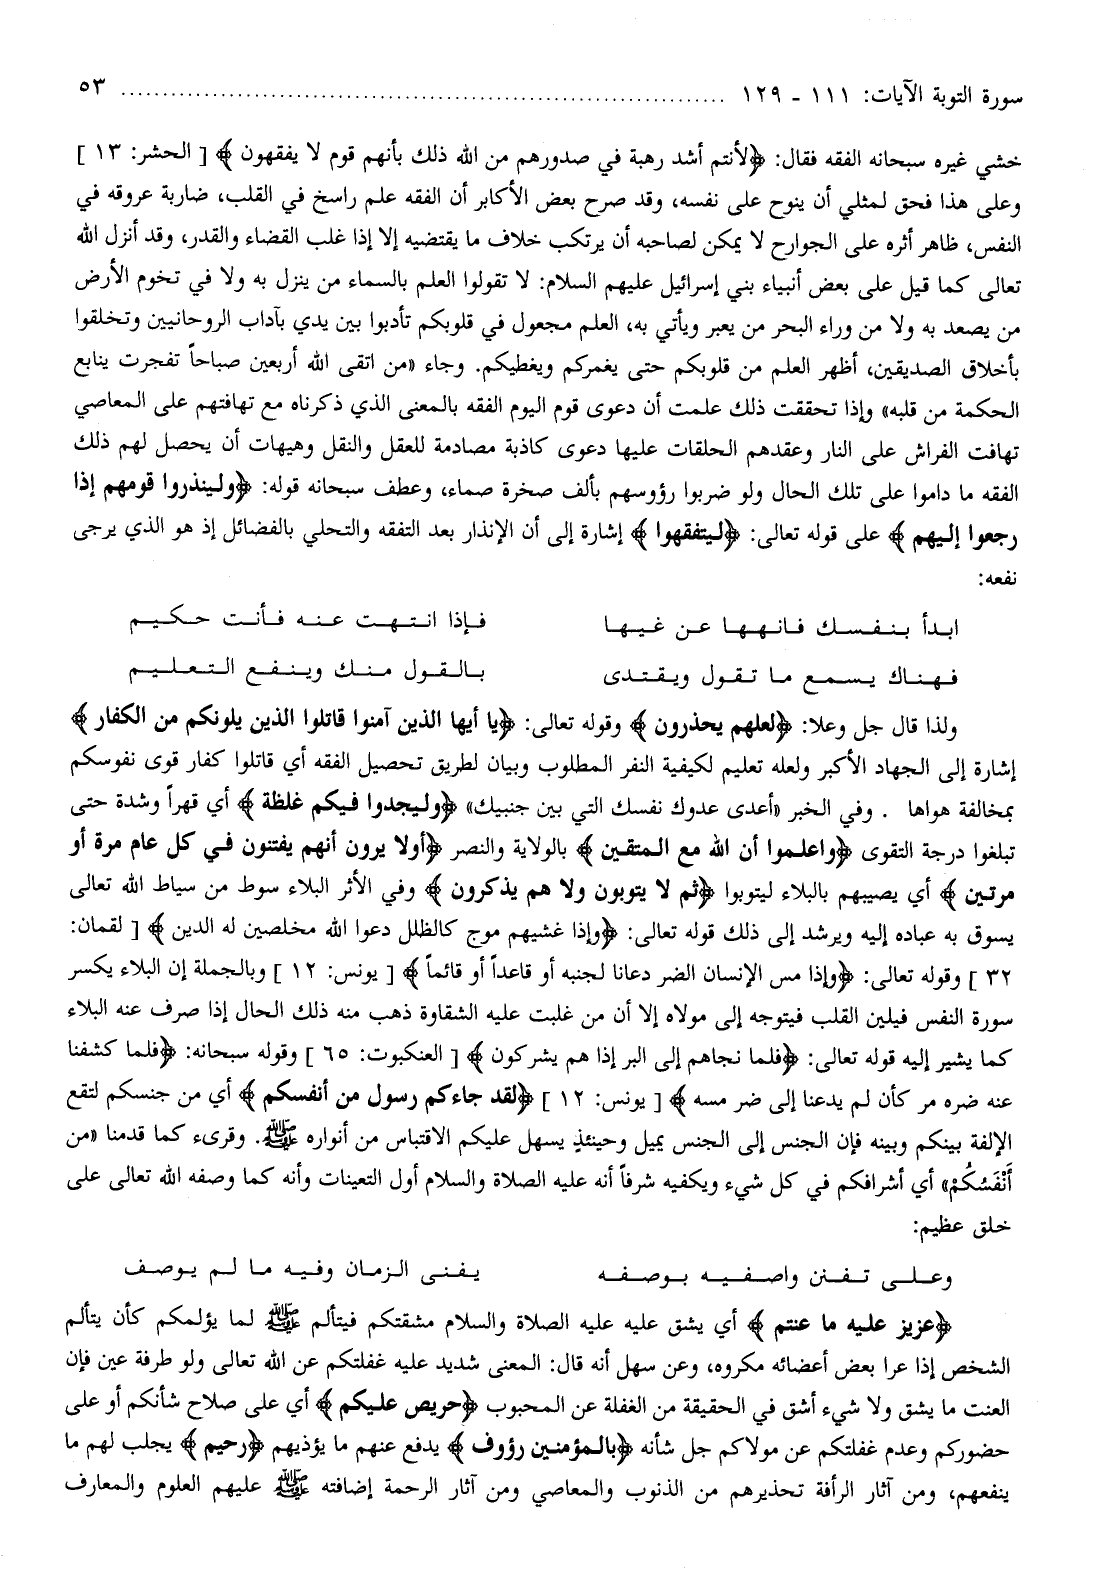 سورة التوبة الآيات: ١١١ - ١٢٩ ................................................ ٥٣
خشي غيره سبحانه الفقه فقال: ﴿لأنتم أشد رهبة في صدورهم من الله ذلك بأنهم قوم لا يفقهون﴾ [ الحشر: ١٣ ]
وعلى هذا فحق لمثلي أن ينوح على نفسه، وقد صرح بعض الأكابر أن الفقه علم راسخ في القلب، ضاربة عروقه في
النفس، ظاهر أثره على الجوارح لا يمكن لصاحبه أن يرتكب خلاف ما يقتضيه إلا إذا غلب القضاء والقدر، وقد أنزل الله
تعالى كما قيل على بعض أنبياء بني إسرائيل عليهم السلام: لا تقولوا العلم بالسماء من ينزل به ولا في تخوم الأرض
من يصعد به ولا من وراء البحر من يعبر ويأتي به، العلم مجعول في قلوبكم تأدبوا بين يدي بآداب الروحانيين وتخلقوا
بأخلاق الصديقين، أظهر العلم من قلوبكم حتى يغمركم ويغطيكم. وجاء «من اتقى الله أربعين صباحاً تفجرت ينابع
الحكمة من قلبه» وإذا تحققت ذلك علمت أن دعوى قوم اليوم الفقه بالمعنى الذي ذكرناه مع تهافتهم على المعاصي
تهافت الفراش على النار وعقدهم الحلقات عليها دعوى كاذبة مصادمة للعقل والنقل وهيهات أن يحصل لهم ذلك
الفقه ما داموا على تلك الحال ولو ضربوا رؤوسهم بألف صخرة صماء، وعطف سبحانه قوله: ﴿ولينذروا قومهم إذا
رجعوا إليهم﴾ على قوله تعالى: ﴿ليتفقهوا﴾ إشارة إلى أن الإنذار بعد التفقه والتحلي بالفضائل إذ هو الذي يرجى
نفعه:
ابدأ بنفسك فانهها عن غيها فإذا انتهت عنه فأنت حكيم
فهناك يسمع ما تقول ويقتدى بالقول منك وينفع التعليم
ولذا قال جل وعلا: ﴿لعلهم يحذرون﴾ وقوله تعالى: ﴿يا أيها الذين آمنوا قاتلوا الذين يلونكم من الكفار﴾
إشارة إلى الجهاد الأكبر ولعله تعليم لكيفية النفر المطلوب وبيان لطريق تحصيل الفقه أي قاتلوا كفار قوى نفوسكم
بمخالفة هواها . وفي الخبر «أعدى عدوك نفسك التي بين جنبيك» ﴿وليجدوا فيكم غلظة﴾ أي قهراً وشدة حتى
تبلغوا درجة التقوى ﴿واعلموا أن الله مع المتقين﴾ بالولاية والنصر ﴿أولا يرون أنهم يفتنون في كل عام مرة أو
مرتين﴾ أي يصيبهم بالبلاء ليتوبوا ﴿ثم لا يتوبون ولا هم يذكرون﴾ وفي الأثر البلاء سوط من سياط الله تعالى
يسوق به عباده إليه ويرشد إلى ذلك قوله تعالى: ﴿وإذا غشيهم موج كالظلل دعوا الله مخلصين له الدين﴾ [ لقمان:
٣٢ ] وقوله تعالى: ﴿وإذا مس الإنسان الضر دعانا لجنبه أو قاعداً أو قائماً﴾ [ يونس: ١٢ ] وبالجملة إن البلاء يكسر
سورة النفس فيلين القلب فيتوجه إلى مولاه إلا أن من غلبت عليه الشقاوة ذهب منه ذلك الحال إذا صرف عنه البلاء
كما يشير إليه قوله تعالى: ﴿فلما نجاهم إلى البر إذا هم يشركون﴾ [ العنكبوت: ٦٥ ] وقوله سبحانه: ﴿فلما كشفنا
عنه ضره مر كأن لم يدعنا إلى ضر مسه﴾ [ يونس: ١٢ ] ﴿لقد جاءكم رسول من أنفسكم﴾ أي من جنسكم لتقع
الإلفة بينكم وبينه فإن الجنس إلى الجنس يميل وحينئذٍ يسهل عليكم الاقتباس من أنواره ﷺ. وقرىء كما قدمنا «من
أَنْفَسُكُمْ» أي أشرافكم في كل شيء ويكفيه شرفاً أنه عليه الصلاة والسلام أول التعينات وأنه كما وصفه الله تعالى على
خلق عظيم:
وعلى تفنن واصفيه بوصفه يفنى الزمان وفيه ما لم يوصف
﴿عزيز عليه ما عنتم﴾ أي يشق عليه عليه الصلاة والسلام مشقتكم فيتألم ﷺ لما يؤلمكم كأن يتألم
الشخص إذا عرا بعض أعضائه مكروه، وعن سهل أنه قال: المعنى شديد عليه غفلتكم عن الله تعالى ولو طرفة عين فإن
العنت ما يشق ولا شيء أشق في الحقيقة من الغفلة عن المحبوب ﴿حريص عليكم﴾ أي على صلاح شأنكم أو على
حضوركم وعدم غفلتكم عن مولاكم جل شأنه ﴿بالمؤمنين رؤوف﴾ يدفع عنهم ما يؤذيهم ﴿رحيم﴾ يجلب لهم ما
ينفعهم، ومن آثار الرأفة تحذيرهم من الذنوب والمعاصي ومن آثار الرحمة إضافته ﷺ عليهم العلوم والمعارف